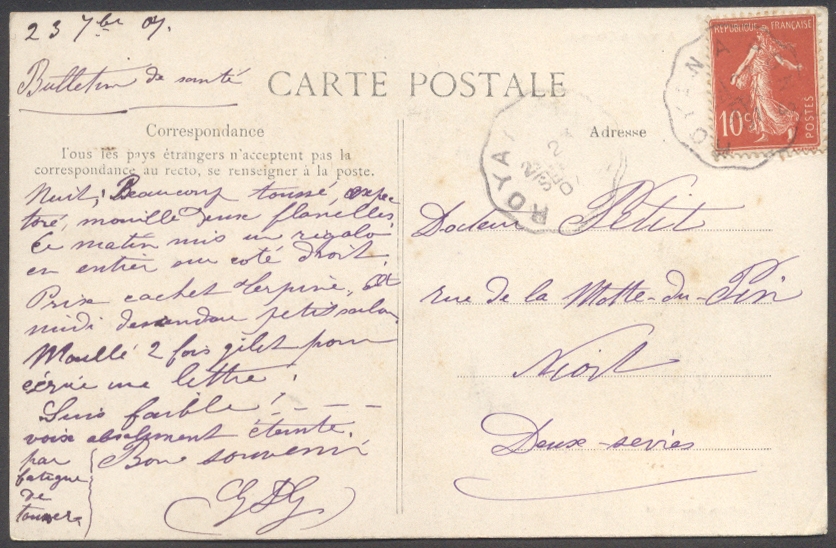 23 7bre 07.
Bulletin de santé
CARTE POSTALE
Correspondance
Tous les pays étrangers n'acceptent pas la
correspondance au recto, se renseigner à la poste.
Nuit, Beaucoup toussé, expec
toré, mouillé deux flanelles
Ce matin mis un rigolo
en entier sur coté droit.
Pris cachet terpine,
midi descendu petit salon.
Mouillé 2 fois gilet pour
écrire une lettre!
Suis faible!
voix absolument éteinte.
par
fatigue
de
tousser
Bons souvenirs
GPG
Adresse
Docteur Petit
rue de la Motte-du-Pin
Niort
Deux-sevres
REPUBLIQUE FRANÇAISE
10c
POSTES
ROYA